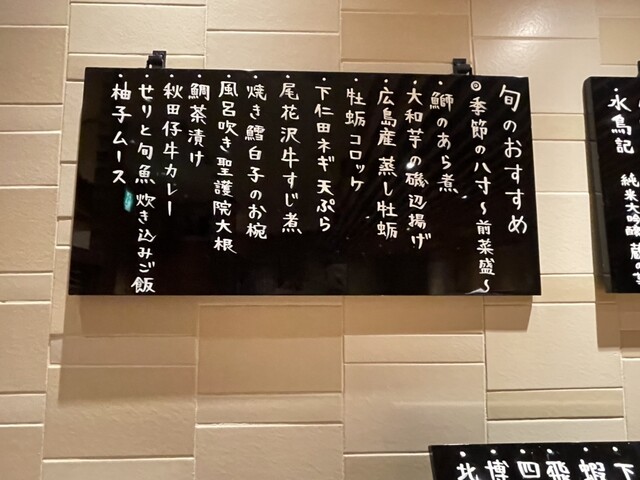 旬のおすすめ
◎季節の八寸〜前菜盛〜
・鰤のあら煮
・大和芋の磯辺揚げ
・広島産 蒸し牡蛎
・牡蛎コロッケ
・下仁田ネギ天ぷら
・尾花沢牛すじ煮
・焼き鱈白子のお椀
・風呂吹き聖護院大根
・鯛茶漬け
・秋田仔牛カレー
・せりと旬魚炊き込みご飯
・柚子ムース
・水鳥記 純米大吟醸 蔵の華
下
蝦
飛
四
博
北